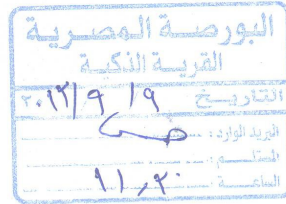 البورصة المصرية
القرية الذكية
التاريخ ٢٠١٣/٩/٩
البريد الوارد:
المستلم:
الساعة ١١,٣٠